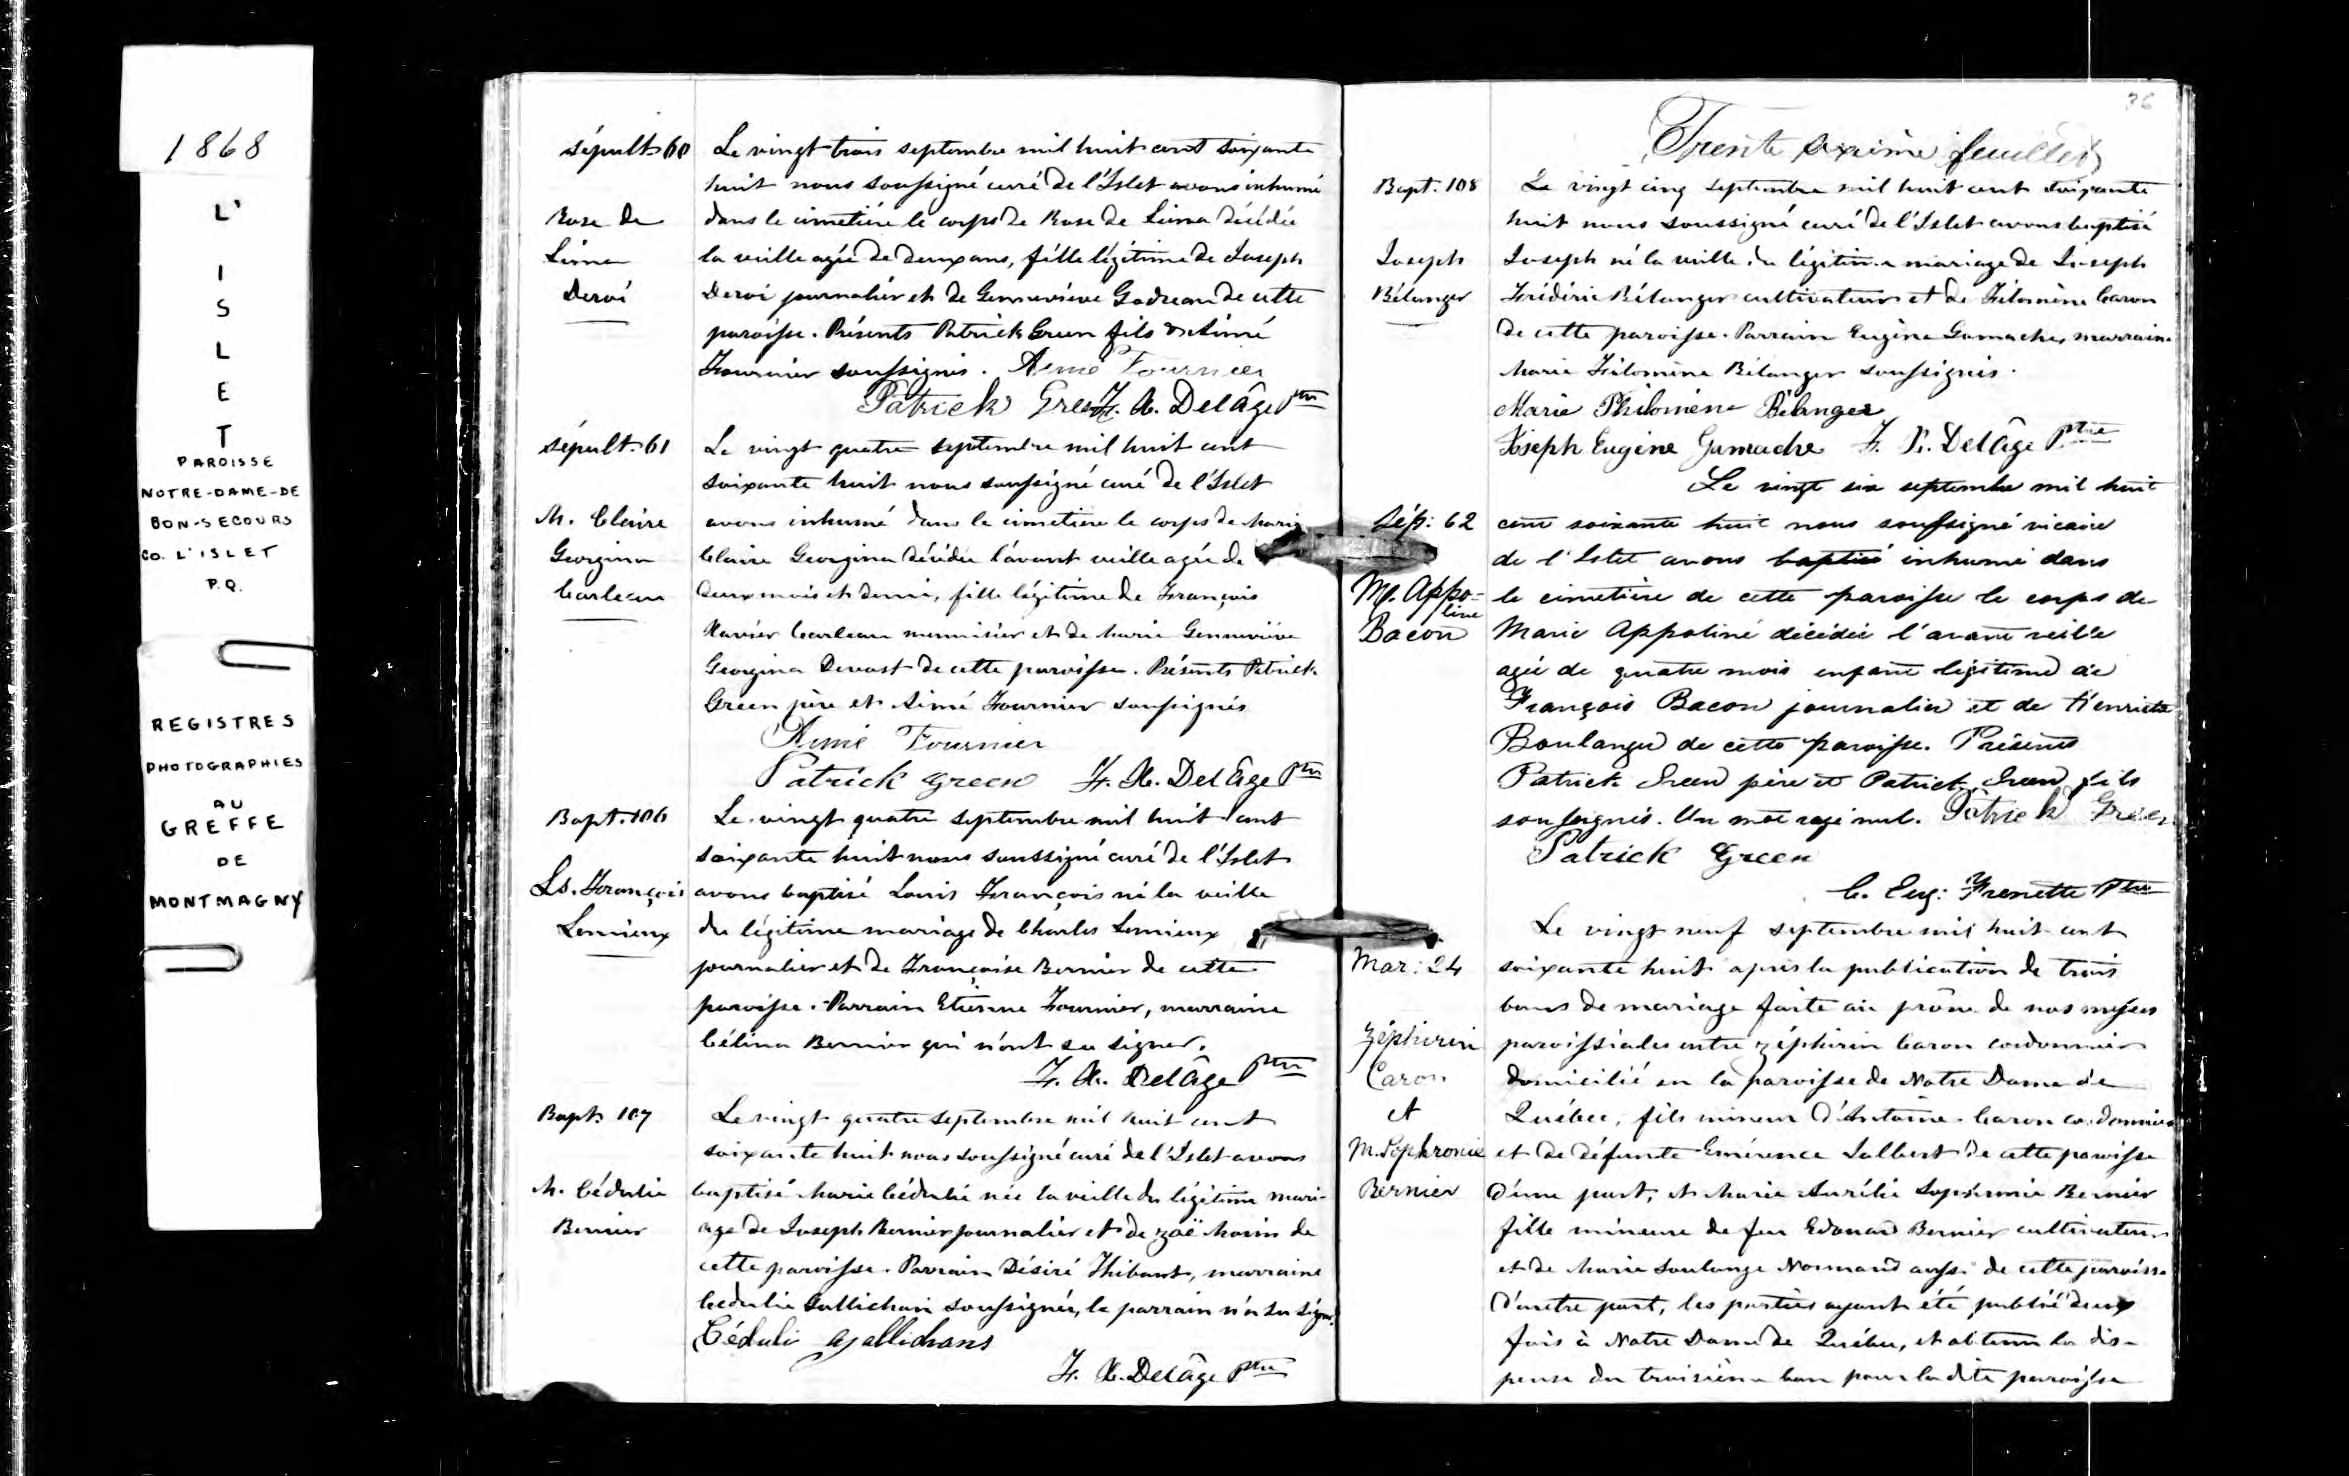 1868
L'
I
S
L
E
T
PAROISSE
NOTRE-DAME-DE
BON-SECOURS
CO. L'ISLET
P.Q.
REGISTRES
PHOTOGRAPHIES
AU
GREFFE
DE
MONTMAGNY
Sépult. 60
Rose de
Lima
Deroi
Le vingt trois septembre mil huit cent soixante
huit nous soussigné curé de l'Islet avons inhumé
dans le cimetière le corps de Rose de Lima décédée
la veille agée de deux ans, fille légitime de Joseph
Deroi journalier et de Genneviève Godreau de cette
paroisse. Présents Patrick Green fils & Aimé
Fournier soussignés. Aimé Fournier
Patrick Green F. X. Delâge Ptre
Sépult. 61
M. Claire
Georgina
Carleau
Le vingt quatre septembre mil huit cent
soixante huit nous soussigné curé de l'Islet
avons inhumé dans le cimetiere le corps de Marie
Claire Georgina décédée l'avant veille agée de
deux mois et demi, fille légitime de François
Xavier Carleau menuisier et de Marie Genneviève
Georgina Devost de cette paroisse. Présents Patrick
Green père et Aimé Fournier soussignés
Aimé Fournier
Patrick Green F. X. Delâge Ptre
Bapt. 106
Ls. François
Lemieux
Le vingt quatre septembre mil huit cent
soixante huit nous soussigné curé de l'Islet
avons baptisé Louis François né la veille
du légitime mariage de Charles Lemieux
journalier et de Françoise Bernier de cette
paroisse. Parrain Etienne Fournier, marraine
Célina Bernier qui n'ont su signer.
F. X. Delâge Ptre
Bapt. 107
M. Cédulie
Bernier
Le vingt quatre septembre mil huit cent
soixante huit nous soussigné curé de l'Islet avons
baptisé Marie Cédulie née la veille du légitime mari-
age de Joseph Bernier journalier et de Zoë Morin de
cette paroisse. Parrain Désiré Thibaut, marraine
Cédulie Gallichan soussignée, le parrain n'a su signer.
Céduli Gallichans
F. X. Delâge Ptre
36
Trente sixième feuillet
Bapt. 108
Joseph
Bélanger
Le vingt cinq septembre mil huit cent soixante
huit nous soussigné curé de l'Islet avons baptisé
Joseph né la veille du légitime mariage de Joseph
Frédéric Bélanger cultivateur et de Filomène Caron
de cette paroisse. Parrain Eugène Gamache, marraine
Marie Filomène Bélanger soussignés.
Marie Philomène Bélanger
Joseph Eugène Gamache F. X. Delâge Ptre
Sép: 62
M. Appo=
line
Bacon
Le vingt six septembre mil huit
cent soixante huit nous soussigné vicaire
de l'Islet avons baptisé inhumé dans
le cimetière de cette paroisse le corps de
Marie Appoliné décédée l'avant veille
agée de quatre mois enfant légitime de
François Bacon journalier et de Henriette
Boulanger de cette paroisse. Présents
Patrick Green père et Patrick Green fils
soussignés. Un mot rayé nul. Patrick Green
Patrick Green
C. Eug: Frenette Ptre
Mar: 24
Zéphirin
Caron
et
M. Sophronie
Bernier
Le vingt neuf septembre mil huit cent
soixante huit après la publication de trois
bans de mariage faite au prône de nos messes
paroissiales entre Zéphirin Caron cordonnier
domicilié en la paroisse de Notre Dame de
Québec, fils mineur d'Antoine Caron cordonnier
et de défunte Emérence Jalbert de cette paroisse
d'une part, et Marie Aurélie Sophronie Bernier
fille mineure de feu Edouard Bernier cultivateur
et de Marie Soulange Normand aussi de cette paroisse
d'autre part, les parties ayant été publié deux
fois à Notre Dame de Québec, et obtenu la dis-
pense du troisième ban pour la dite paroisse